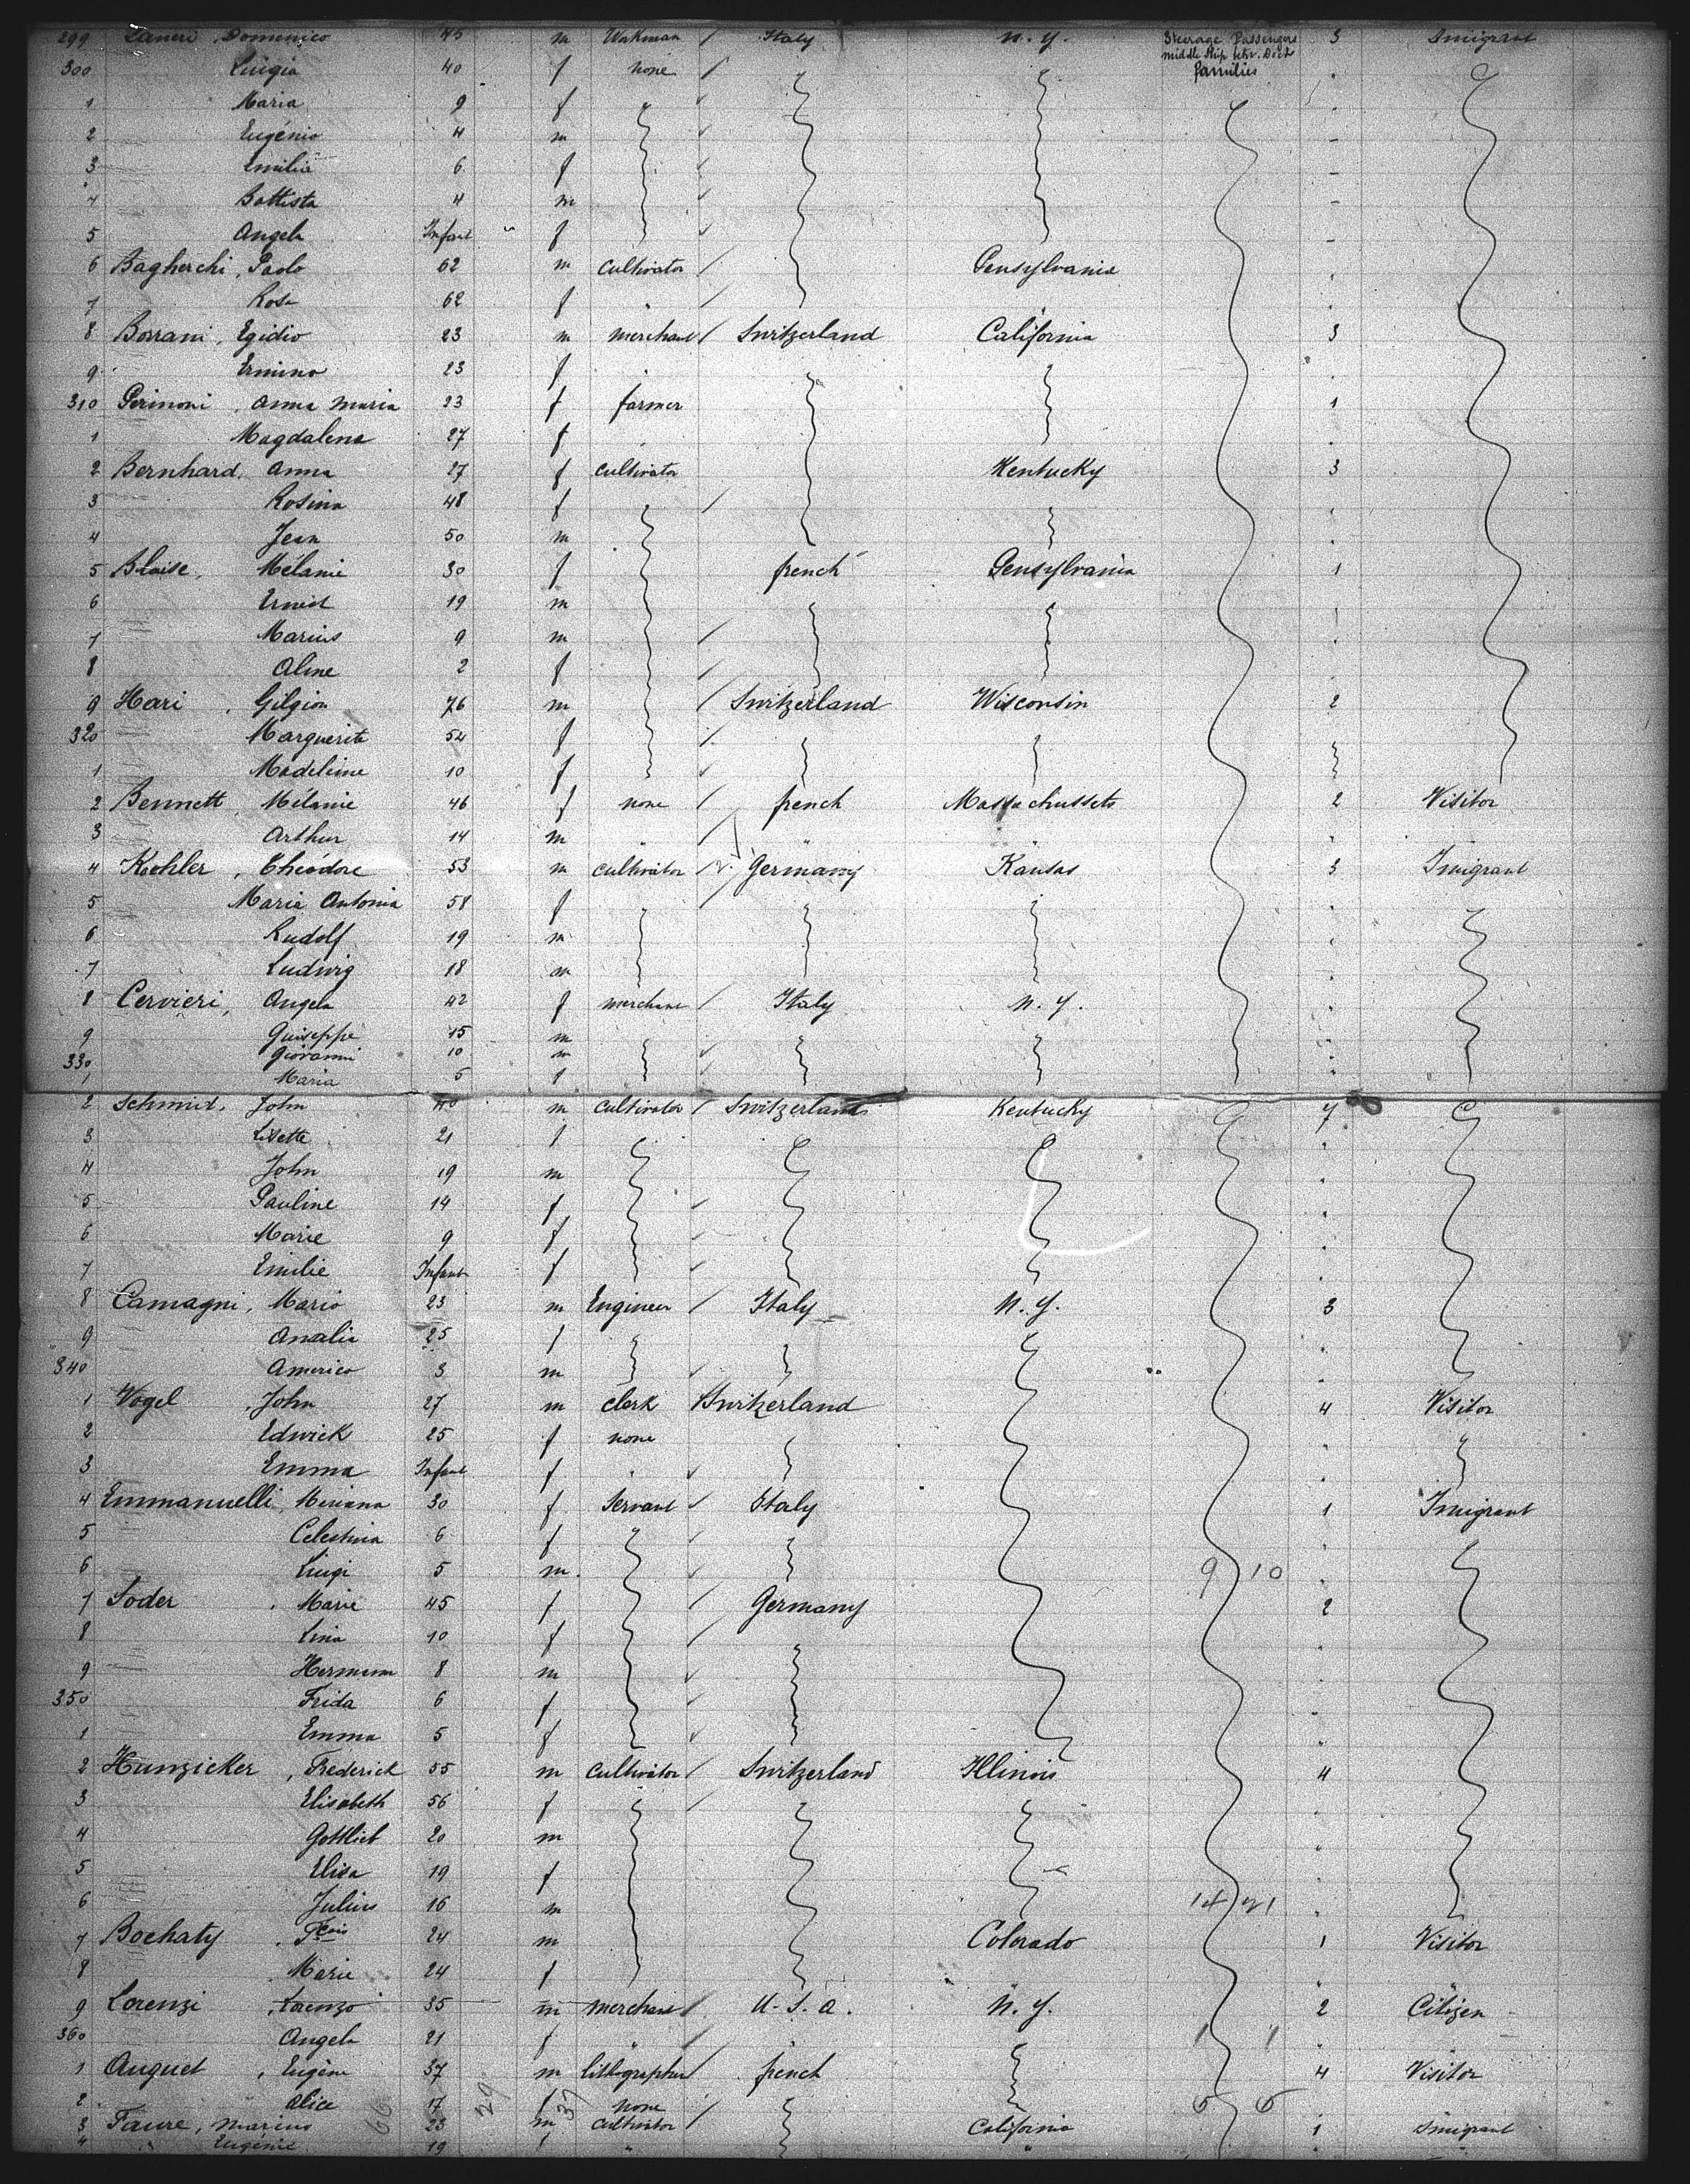 299 Laneri, Domenico 45 m Workman / Italy N.Y. Steerage Passengers 3 Imigrant
middle Ship betw. Deck
300 Luigia 40 f none / families
1 Maria 9 f
2 Eugénio 4 m
3 Emilia 6 f
4 Battista 4 m
5 Angela Infant f
6 Bagherchi, Paolo 62 m cultivator / Pensylvania
7 Rosa 62 f " /
8 Borrani, Egidio 23 m merchant / Switzerland California 3
9 Ermino 23 f "
310 Perinoni, Anna Maria 23 f farmer 1
1 Magdalena 27 f
2 Bernhard, Anna 27 f cultivator Kentucky 3
3 Rosina 48 f /
4 Jean 50 m
5 Blaise, Mélanie 30 f french Pensylvania 1
6 Ernest 19 m
7 Marius 9 m /
8 Aline 2 f /
9 Hari, Gilgion 76 m / Switzerland Wisconsin 2
320 Marguerite 54 f /
1 Madeleine 10 f
2 Bennett, Mélanie 46 f none / french Massachussets 2 Visitor
3 Arthur 14 m " /
4 Koehler, Théodore 53 m cultivator / Germany Kansas 3 Imigrant
5 Marie Antonia 58 f /
6 Rudolf 19 m
7 Ludwig 18 m
8 Cervieri, Angela 42 f merchant / Italy N.Y. "
9 Guiseppe 15 m
330 Giovanni 10 m
1 Maria 5 f
2 Schmid, John 40 m cultivator / Switzerland Kentucky 7
3 Lisette 21 f
4 John 19 m
5 Pauline 14 f
6 Marie 9 f
7 Emilie Infant f
8 Camagni, Mario 23 m Engineer / Italy N.Y. 3
9 Amalia 25 f
340 Americo 3 m
1 Vogel, John 27 m clerk Switzerland 4 Visitor
2 Edwick 25 f none
3 Emma Infant f "
4 Emmanuelli, Miriana 30 f Servant Italy 1 Imigrant
5 Celestina 6 f
6 Luigi 5 m 9 10
7 Soder, Marie 45 f / Germany 2
8 Lina 10 f /
9 Hermann 8 m
350 Frida 6 f
1 Emma 5 f
2 Hunzicker, Frederick 55 m cultivator / Switzerland Illinois 4
3 Elisabeth 56 f /
4 Gottlieb 20 m
5 Elisa 19 f
6 Julius 16 m 14 21
7 Bochaty, Fçois 24 m Colorado 1 Visitor
8 Marie 24 f "
9 Lorenzi, Lorenzo 35 m merchant / U.S.A. N.Y. 2 Citizen
360 Angela 21 f " / " 1 1 "
1 Auguet, Eugène 37 m lithographer / french 4 Visitor
2 Alice 17 f none / 6 6
66 29 37
3 Faure, Marius 23 m cultivator / California 1 Imigrant
4 " Eugénie 19 f " " "